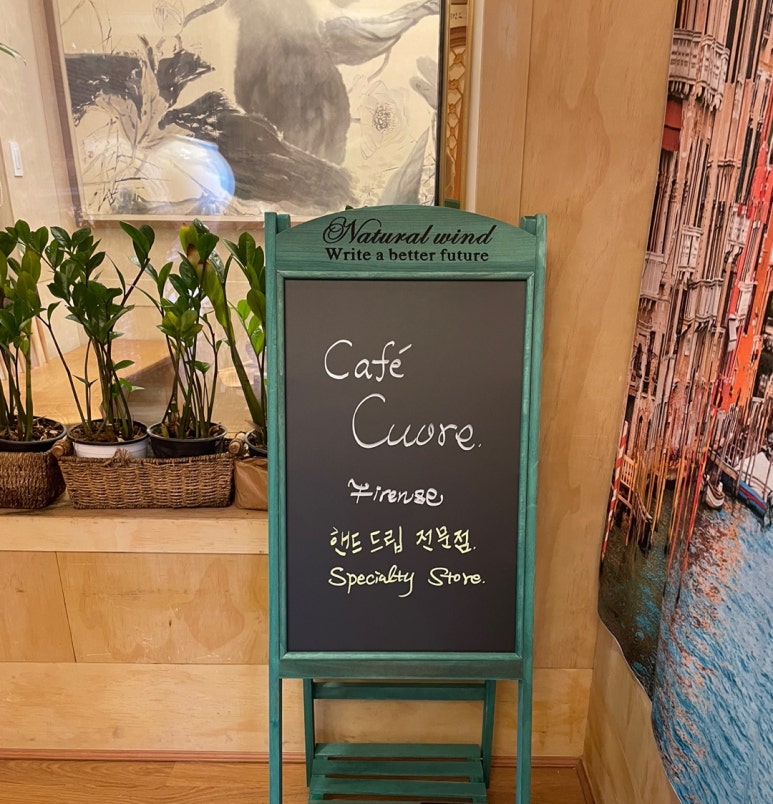 Natural wind
Write a better future
Café
Cuore.
Firenze
핸드드립 전문점.
Specialty Store.